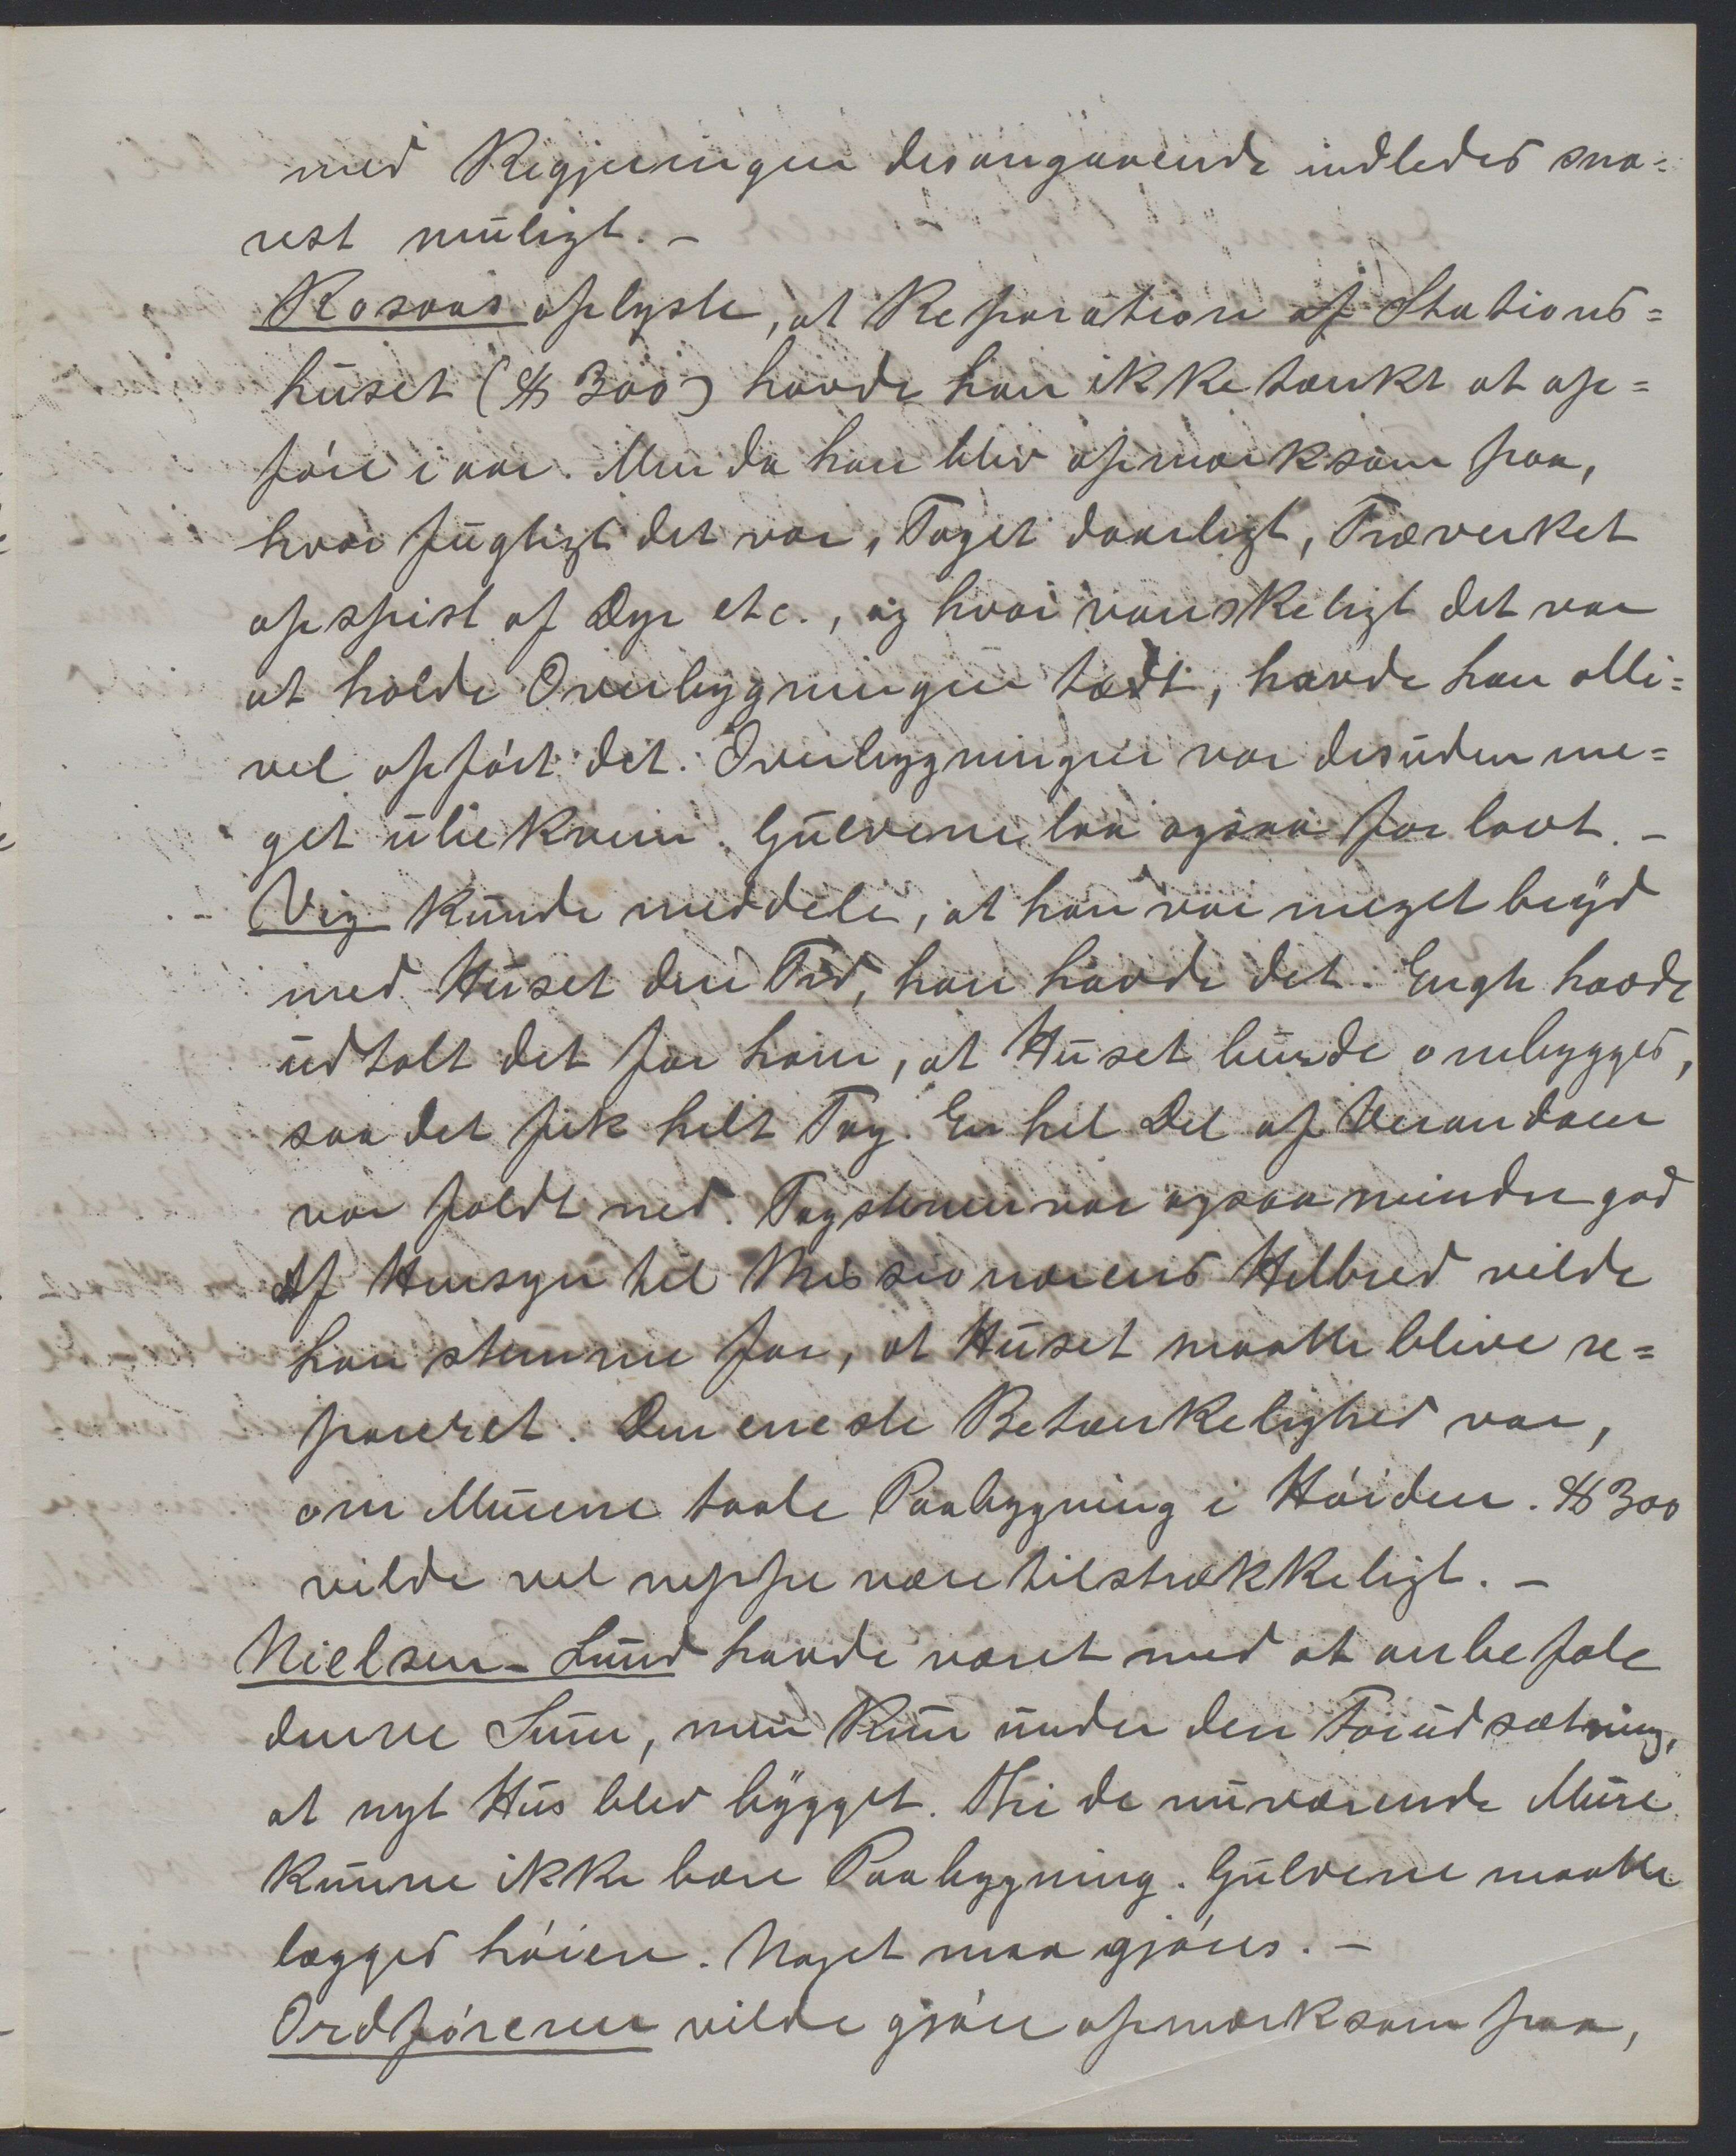 med Regjeringen desangaaende indledes sna=
rest muligt. –
Rosaas oplyste, at Reparation af Stations=
huset ($ 300) havde han ikke tænkt at op=
føre i aar. Men da han blev opmærksom paa,
hvor fugtigt det var, Taget daarligt, Træverket
opspist af Dyr etc., og hvor vanskeligt det var
at holde Overbygningen tædt, havde han alli=
vel opført det. Overbygningen var desuden me=
get ubekvem. Gulvene laa ogsaa for lavt. –
Vig kunde meddele, at han var meget bryd
med Huset den Tid, han havde det. Engh havde
udtalt det for ham, at Huset burde ombygges,
saa det fik helt Tag. En hel Del af Verandaen
var faldt ned. Tagstenen var ogsaa mindre god
Af Hensyn til Missionærens Helbred vilde
han stemme for, at Huset maatte blive re=
pareret. Den eneste Betænkelighed var,
om Murene taale Paabygning i Høiden. $ 300
vilde vel neppe være tilstrækkeligt. –
Nielsen-Lund havde været med at anbefale
denne Sum, men kun under den Forudsætning,
at nyt Hus blev bygget. Thi de nuværende Mure
kunne ikke bære Paabygning. Gulvene maatte
lægges høiere. Noget maa gjøres. –
Ordføreren vilde gjøre opmærksom paa,